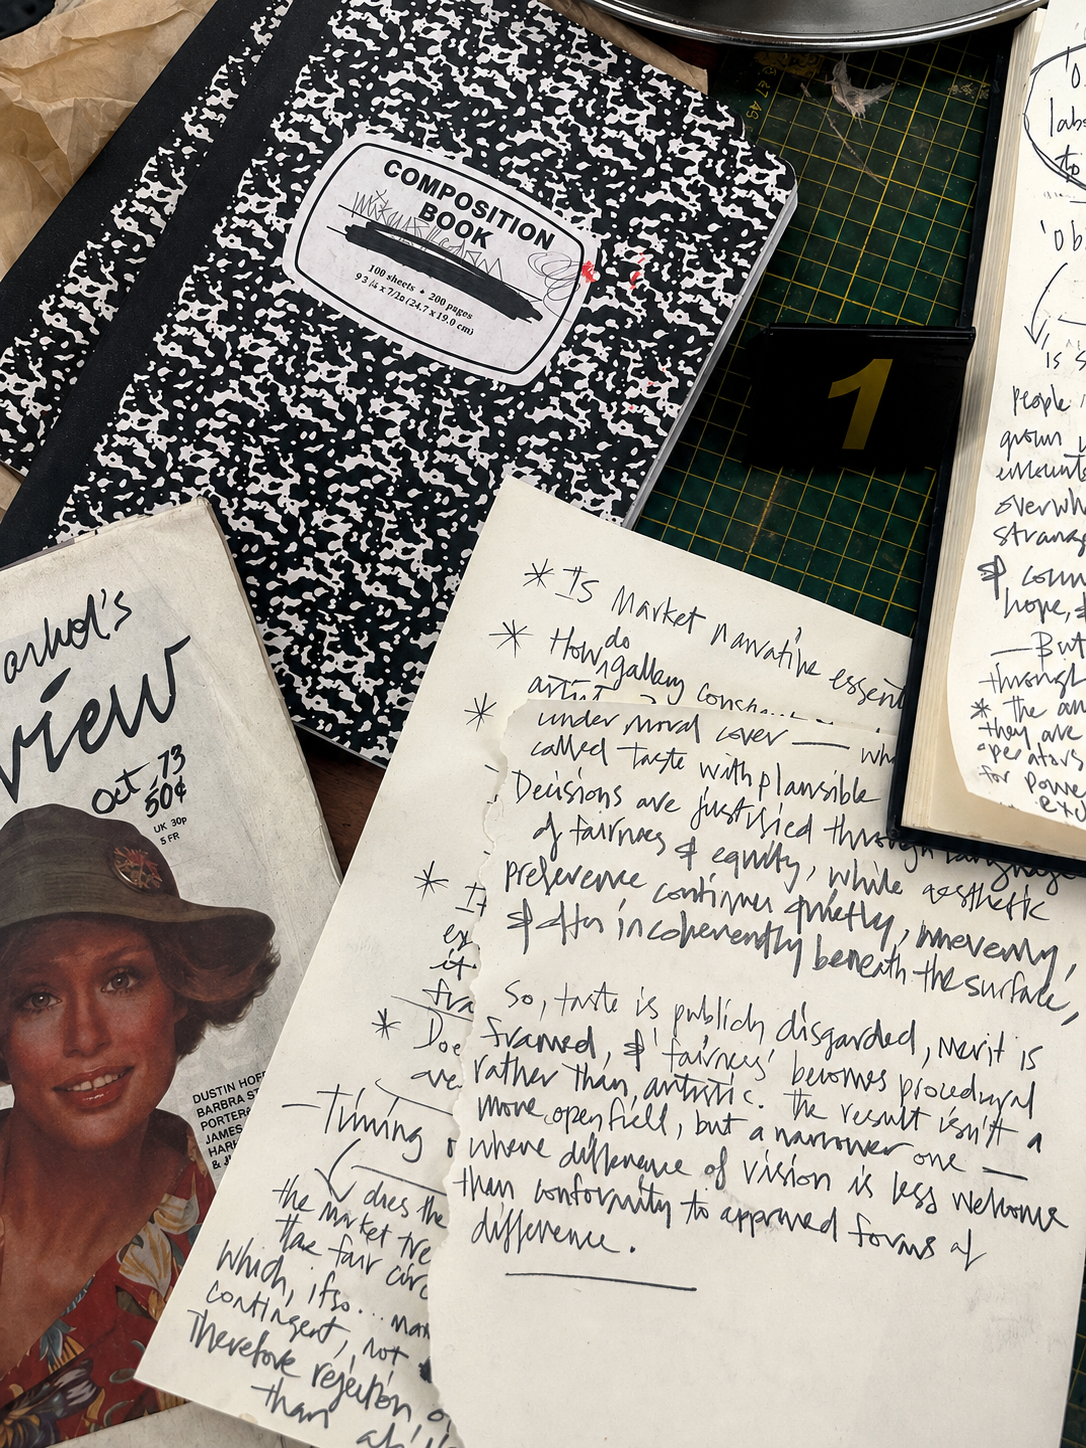 COMPOSITION
BOOK
100 sheets • 200 pages
9 3/4 x 7 1/2 (24.7 x 19.0 cm)
1
view
Oct 73
50¢
UK 30p
5 FR
DUSTIN HOF
BARBRA ST
PORTER
JAMES
HAR
& J
* Is Market narrative essent
* How do gallery
artist
*
* It
ex
it
fra
* Doe
ave
– Timing
does the
the market tre
the fair circ
which, if so... man
contingent, not
Therefore rejection o
than
under moral cover — wh
called taste with plausible
Decisions are justified through language
of fairness & equity, while aesthetic
preference continues quietly, unevenly,
& often incoherently beneath the surface,
So, taste is publicly disgarded, merit is
framed, & 'fairness' becomes procedural
rather than artistic. The result isn't a
more open field, but a narrower one —
where difference of vision is less welcome
than conformity to approved forms of
difference.
'O
labs
to
'Ob
is s
people
grown
encounte
overwh
strang
& comm
hope, &
— But
through
* The an
they are
operators
for powe
exc